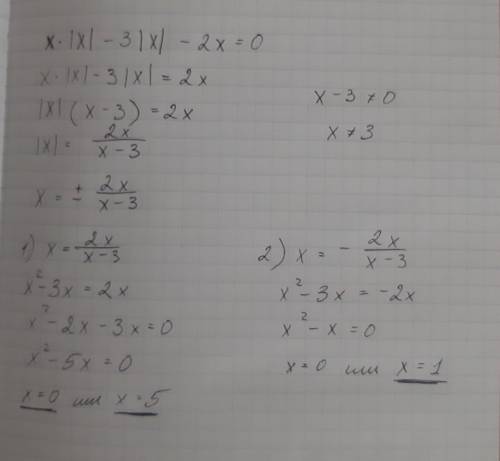 x·|x| - 3|x| - 2x = 0
x·|x| - 3|x| = 2x
|x|(x-3) = 2x
x-3 ≠ 0
|x| = 2x/(x-3)
x ≠ 3
x = ± 2x/(x-3)
1) x = 2x/(x-3)
x²-3x = 2x
x²-2x-3x=0
x²-5x = 0
x=0 или x=5
2) x = - 2x/(x-3)
x²-3x = -2x
x²-x = 0
x=0 или x=1